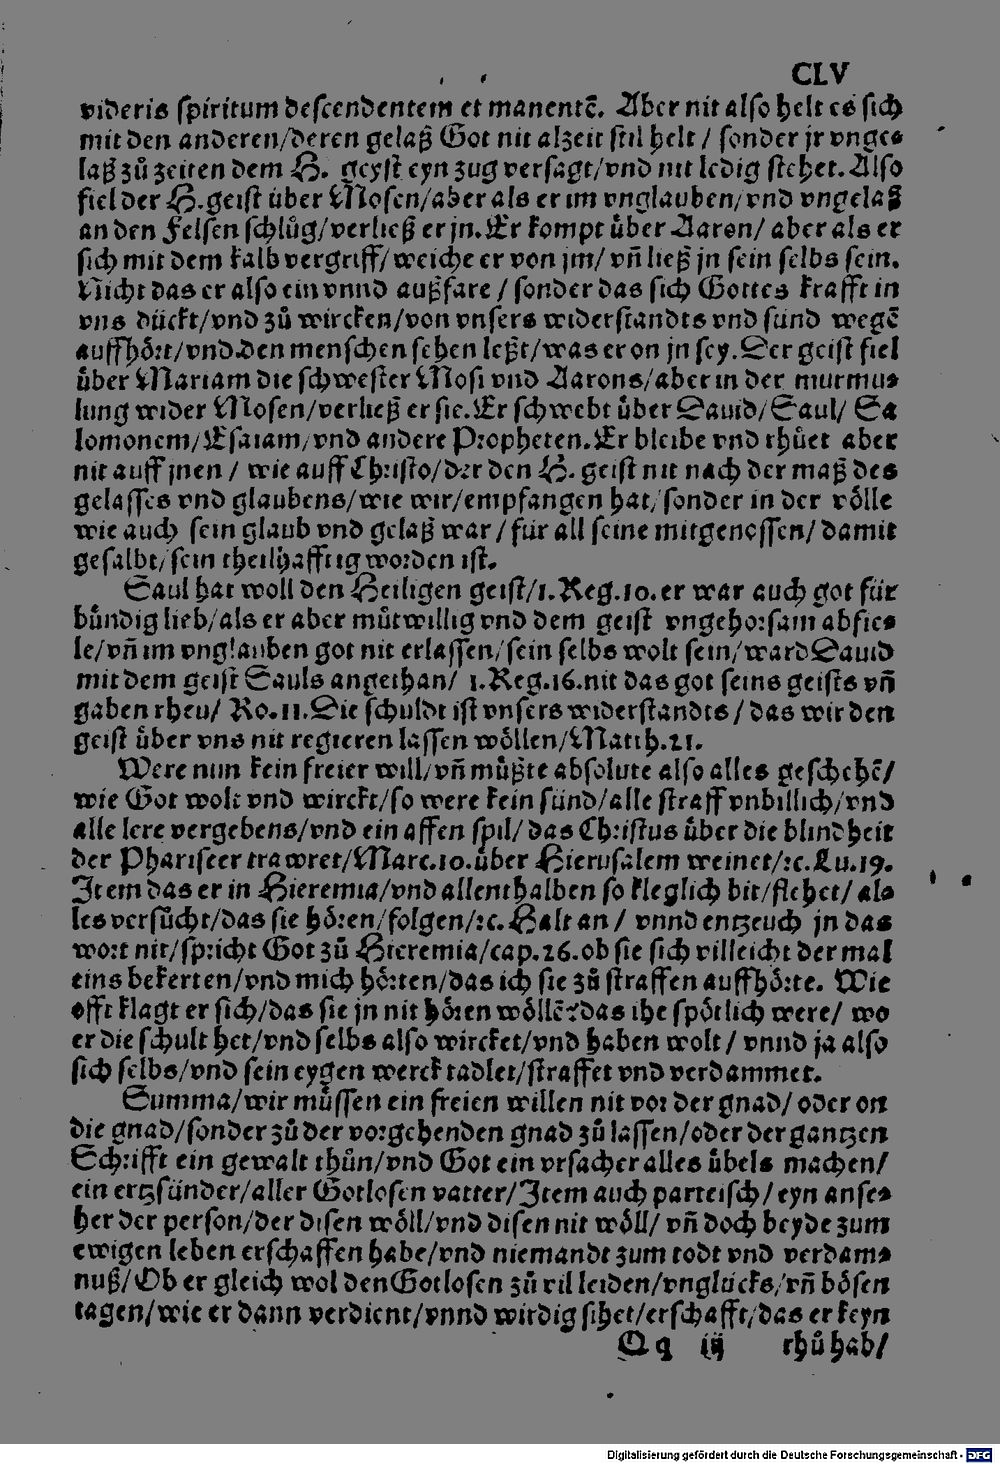 CLV
videris spiritum descendentem et manentē. Aber nit also helt es sich
mit den anderen/deren gelaß Got nit alzeit stil helt / sonder jr vnge⸗
laß zů zeiten dem H. geyst eyn zug versagt/vnd nit ledig stehet. Also
fiel der H. geist über Mosen/aber als er im vnglauben/vnd vngelaß
an den Felsen schlůg/verließ er jn. Er kompt über Aaron/ aber als er
sich mit dem kalb vergriff/weiche er von jm/ vñ ließ jn sein selbs sein.
Nicht das er also ein vnnd außfare / sonder das sich Gottes krafft in
vns dückt/vnd zů wircken/von vnsers widerstandts vnd sünd wegē
auffhört/vnd den menschen sehen leßt/was er on jn sey. Der geist fiel
über Mariam die schwester Mosi vnd Aarons/aber in der murmu⸗
lung wider Mosen/verließ er sie. Er schwebt über Dauid/Saul/ Sa
lomonem/Esaiam/vnd andere Propheten. Er bleibe vnd rhůet aber
nit auff jnen / wie auff Christo/der den H. geist nit nach der maß des
gelasses vnd glaubens/wie wir/empfangen hat/sonder in der völle
wie auch sein glaub vnd gelaß war / für all seine mitgenossen/ damit
gesalbt/sein theilhafftig worden ist.
Saul hat woll den Heiligen geist/1. Reg. 10. er war auch got für
bündig lieb/als er aber můtwillig vnd dem geist vngehorsam abfie⸗
le/vñ im vnglauben got nit erlassen/sein selbs wolt sein/ward Dauid
mit dem geist Sauls angethan/ 1. Reg. 16. nit das got seins geists vñ
gaben rheu/ Ro. 11. Die schuldt ist vnsers widerstandts / das wir den
geist über vns nit regieren lassen wöllen/Matth. 21.
Were nun kein freier will/vñ müßte absolute also alles geschehē/
wie Got wolt vnd wirckt/so were kein sünd/alle straff vnbillich/vnd
alle lere vergebens/vnd ein affen spil/das Christus über die blindheit
der Phariseer trawret/Marc. 10. über Hierusalem weinet/ꝛc. Lu. 19.
Item das er in Hieremia/vnd allenthalben so kleglich bit/flehet/ al⸗
les versücht/das sie hören/folgen/ꝛc. Halt an / vnnd entzeuch jn das
wort nit/spricht Got zů Hieremia/cap. 26. ob sie sich villeicht der mal
eins bekerten/vnd mich hörten/das ich sie zů straffen auffhörte. Wie
offt klagt er sich/das sie jn nit hören wöllē? das ihe spötlich were/ wo
er die schult het/vnd selbs also wircket/vnd haben wolt / vnnd ja also
sich selbs/vnd sein eygen werck tadlet/straffet vnd verdammet.
Summa/wir müssen ein freien willen nit vor der gnad/ oder on
die gnad/sonder zů der vorgehenden gnad zů lassen/oder der gantzen
Schrifft ein gewalt thůn/vnd Got ein vrsacher alles übels machen/
ein ertzsünder/aller Gotlosen vatter/Item auch parteisch/ eyn anse⸗
her der person/der disen wöll/vnd disen nit wöll/ vñ doch beyde zum
ewigen leben erschaffen habe/vnd niemandt zum todt vnd verdam⸗
nuß/ Ob er gleich wol den Gotlosen zů vil leiden/vnglücks/vñ bösen
tagen/wie er dann verdient/vnnd wirdig sihet/erschafft/das er keyn
Qq iij rhů hab/
Digitalisierung gefördert durch die Deutsche Forschungsgemeinschaft - DFG